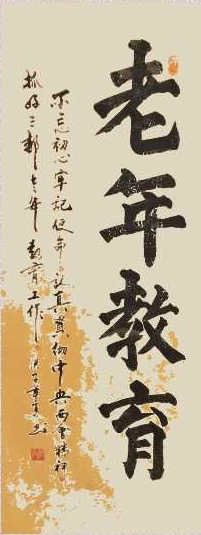 老年教育
不忘初心牢记使命认真贯彻中央两会精神
抓好三老年教育工作